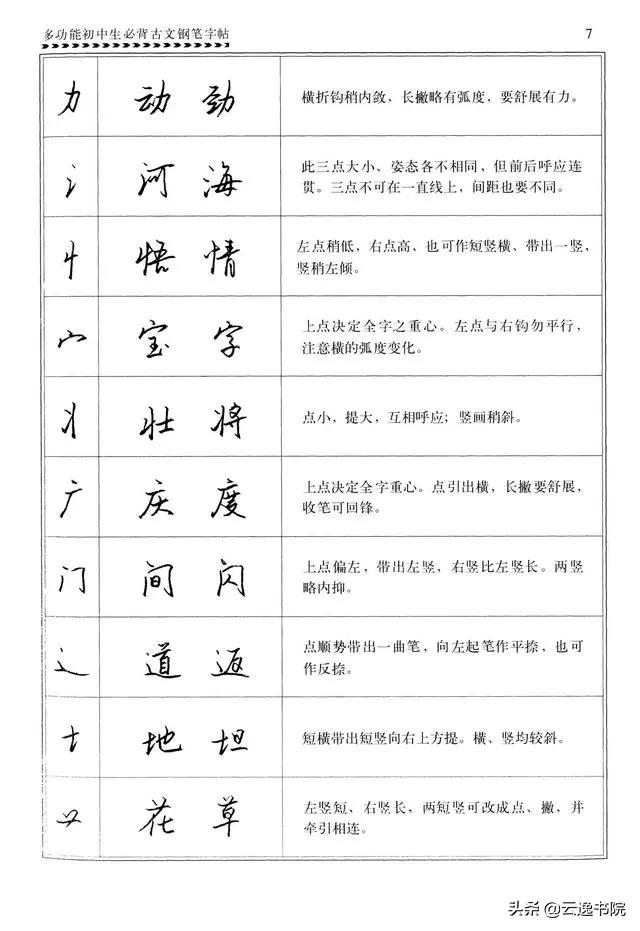 多功能初中生必背古文钢笔字帖
7
力 动 劲 横折钩稍内敛，长撇略有弧度，要舒展有力。
氵 河 海 此三点大小、姿态各不相同，但前后呼应连
贯。三点不可在一直线上，间距也要不同。
忄 悟 情 左点稍低，右点高，也可作短竖横、带出一竖，
竖稍左倾。
宀 宝 字 上点决定全字之重心。左点与右钩勿平行，
注意横的弧度变化。
丬 壮 将 点小，提大，互相呼应；竖画稍斜。
广 庆 度 上点决定全字重心。点引出横，长撇要舒展，
收笔可回锋。
门 间 闪 上点偏左，带出左竖，右竖比左竖长。两竖
略内抑。
辶 道 返 点顺势带出一曲笔，向左起笔作平捺，也可
作反捺。
土 地 坦 短横带出短竖向右上方提。横、竖均较斜。
艹 花 草 左竖短，右竖长，两短竖可改成点、撇，并
牵引相连。
头条 @云逸书院